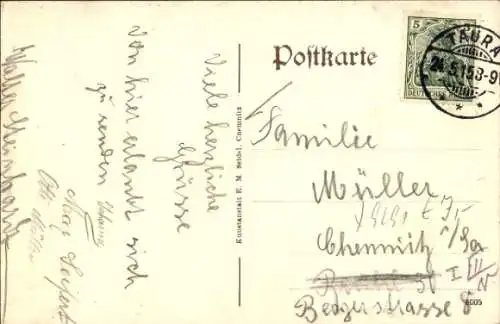 Postkarte
5
DEUTSCHES
TAURA
24.5.15 8-9
Viele herzliche
Grüsse
Von hier erlaubt sich
zu senden
Max Seifert
Otto Müller
Kunstanstalt E. M. Seidel, Chemnitz
Familie
Müller
Chemnitz i/Sa
Bergerstrasse 8
6005